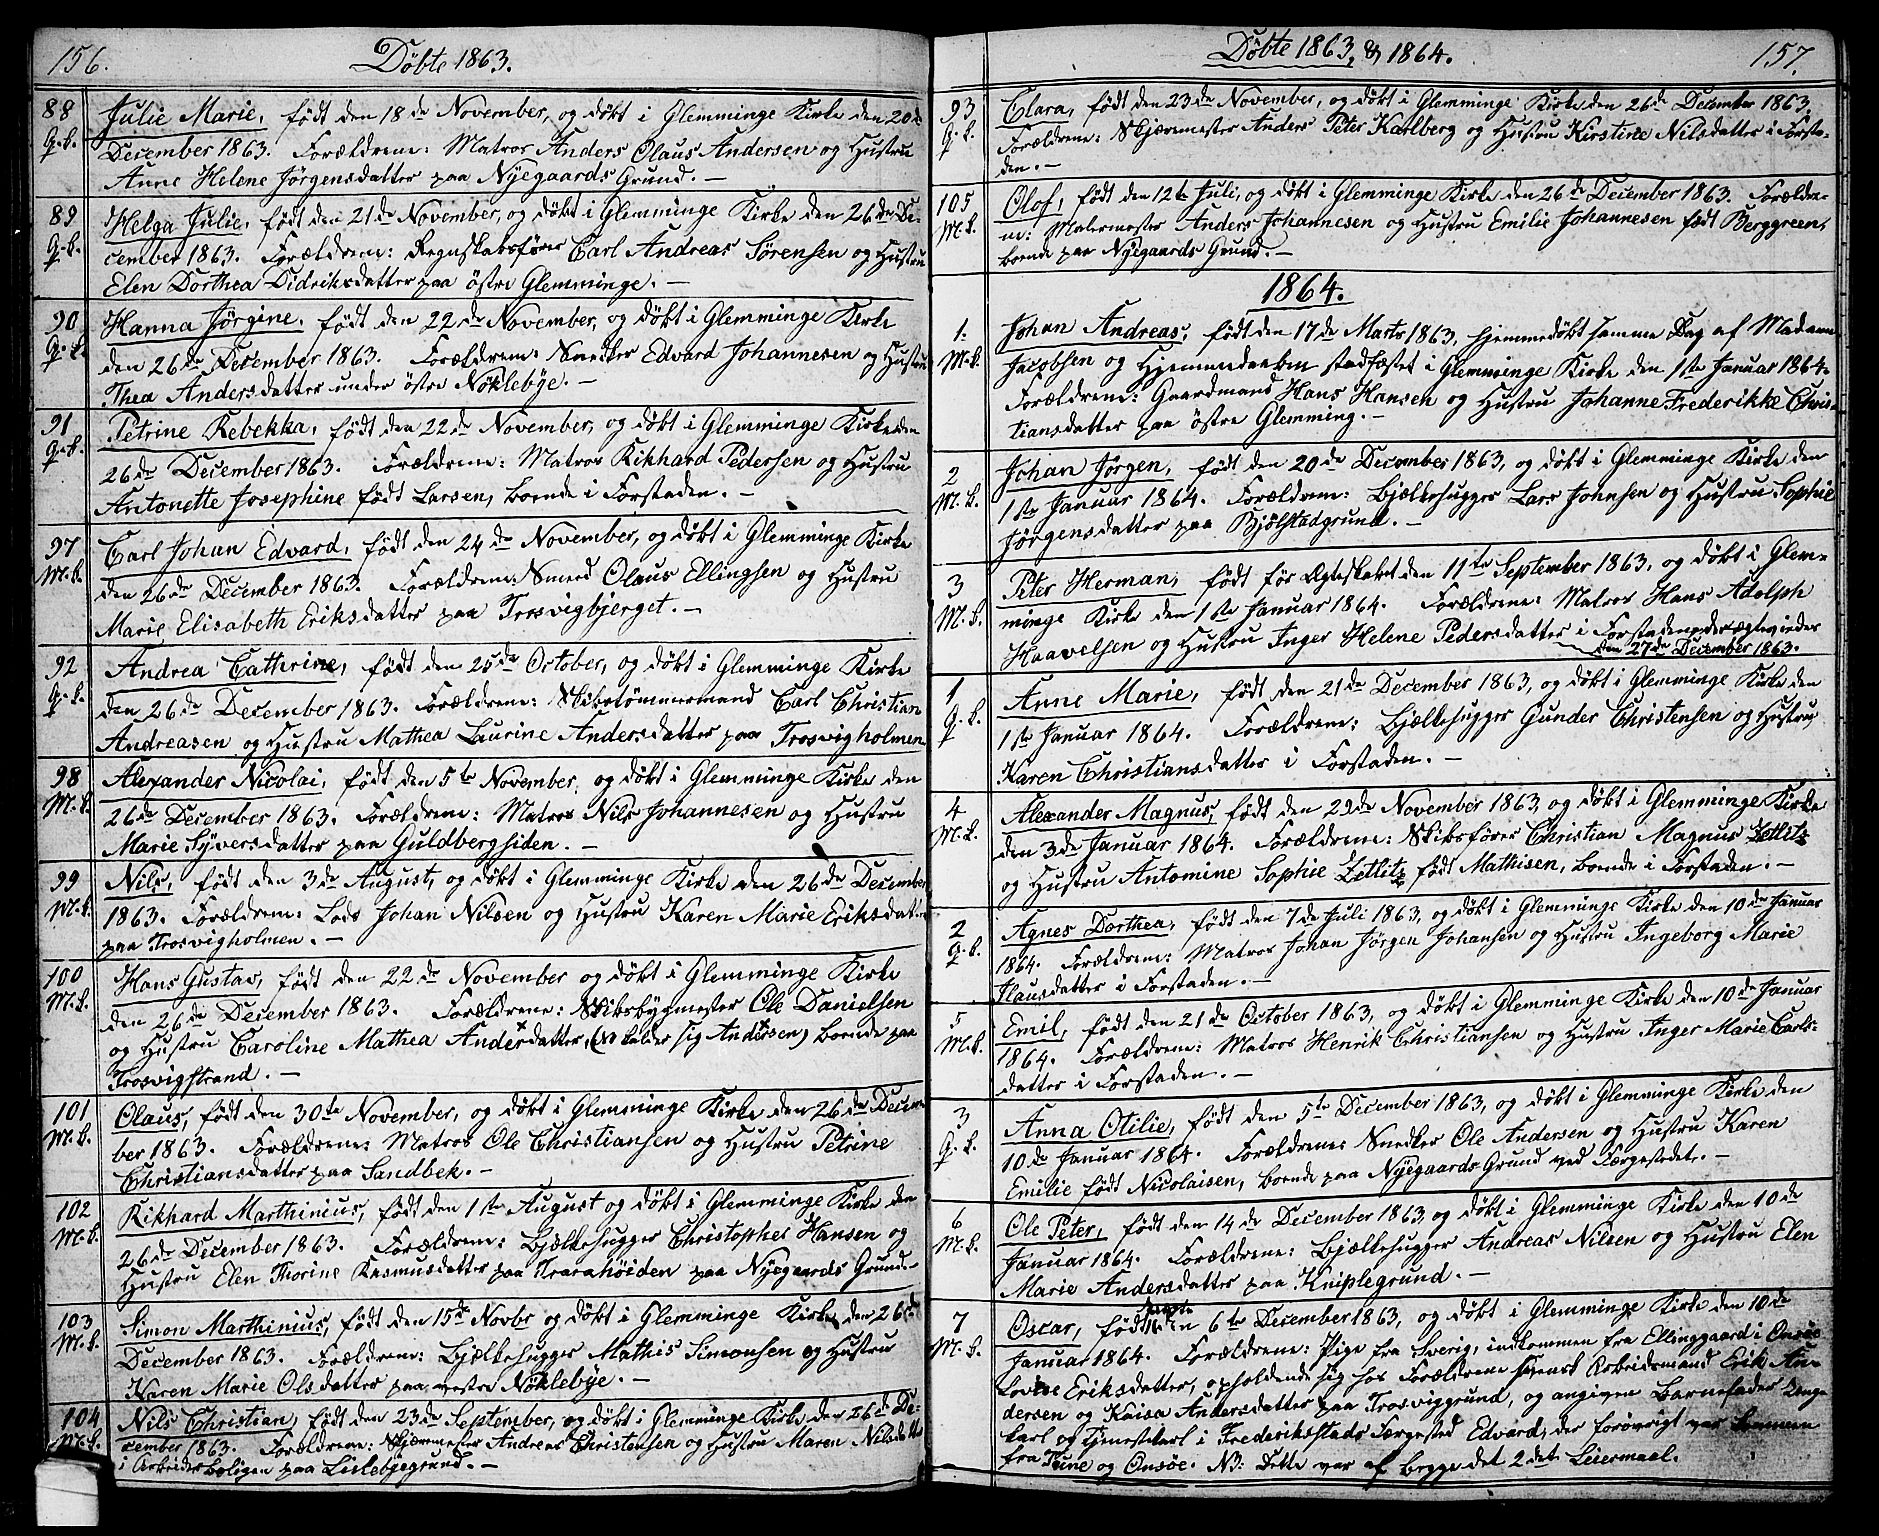 156.
Döbte 1863.
88 Julie Marie, født den 18de November, og døbt i Glemminge Kirke den 20de
q. k. December 1863. Forældrene: Matros Anders Olaus Andersen og Hustru
Anne Helene Jørgensdatter paa Nyegaards Grund. —
89 Helga Julie, født den 21de November, og døbt i Glemminge Kirke den 26de De-
q. k. cember 1863. Forældrene: Regnskabsfører Carl Andreas Sørensen og Hustru
Elen Dorthea Didriksdatter paa östre Glemminge. —
90 Hanna Jørgine, født den 22de November, og døbt i Glemminge Kirke
q. k. den 26de December 1863. Forældrene: Snedker Edvard Johannesen og Hustru
Thea Andersdatter under östre Nøklebye. —
91 Petrine Rebekka, født den 22de November, og døbt i Glemminge Kirke den
q. k. 26de December 1863. Forældrene: Matros Rikhard Pedersen og Hustru
Antonette Josephine født Larsen, boende i Forstaden. —
97 Carl Johan Edvard, født den 24de November, og døbt i Glemminge Kirke
M. k. den 26de December 1863. Forældrene: Smed Olaus Ellingsen og Hustru
Marie Elisabeth Eriksdatter paa Trosvigbjerget. —
92 Andrea Cathrine, født den 25de October, og døbt i Glemminge Kirke
q. k. den 26de December 1863. Forældrene: Skibstømmermand Carl Christian
Andreasen og Hustru Mathea Laurine Andersdatter paa Trosvigholmen
98 Alexander Nicolai, født den 5te November, og døbt i Glemminge Kirke den
M. k. 26de December 1863. Forældrene: Matros Nils Johannesen og Hustru
Marie Syversdatter paa Guldbergsiden. —
99 Nils, født den 3de August, og døbt i Glemminge Kirke den 26de December
M. k. 1863. Forældrene: Lods Johan Nilsen og Hustru Karen Marie Eriksdatter
paa Trosvigholmen. —
100 Hans Gustav, født den 22de November og døbt i Glemminge Kirke
M. k. den 26de December 1863. Forældrene: Skibsbygmester Ole Danielsen
og Hustru Caroline Mathea Andersdatter, ( kalder sig Andersen) boende paa
Trosvigstrand. —
101 Olaus, født den 30te November, og døbt i Glemminge Kirke den 26de Decem-
M. k. ber 1863. Forældrene: Matros Ole Christiansen og Hustru Petrine
Christiansdatter paa Sandbek. —
102 Rikhard Marthinius, født den 1ste August og døbt i Glemminge Kirke den
M. k. 26de December 1863. Forældrene: Bjælkehugger Christopher Hansen og
Hustru Elen Thorine Rasmusdatter paa Trarahöiden paa Nyegaards Grund. —
103 Simon Marthinius, født den 15de Novbr og døbt i Glemminge Kirke den 26de
M. k. December 1863. Forældrene: Bjælkehugger Mathis Simonsen og Hustru
Karen Marie Olsdatter paa vestre Nøklebye. —
104 Nils Christian, født den 23de September, og døbt i Glemminge Kirke den 26de De-
M. k. cember 1863. Forældrene: Skjærmester Andreas Christensen og Hustru Maren Nilsdatter
i Arbeiderboligen paa Lislebyegrund. —
Döbte 1863, & 1864.
157.
93 Clara, født den 23de November, og døbt i Glemminge Kirke den 26de December 1863.
q. k. Forældrene: Skjærmester Anders Peter Karlberg og Hustru Kirstine Nilsdatter i Forsta-
den. —
105 Olof, født den 12te Juli, og døbt i Glemminge Kirke den 26de December 1863. Forældre-
M. k. ne: Malermester Anders Johannesen og Hustru Emilie Johannesen født Berggreen,
boende paa Nyegaards Grund. —
1864.
1. Johan Andreas, født den 17de Marts 1863, hjemmedøbt samme Dag af Madame
M. k. Jacobsen og Hjemmedaaben stadfæstet i Glemminge Kirke den 1ste Januar 1864.
Forældrene: Gaardmand Hans Hansen og Hustru Johanne Frederikke Chris-
tiansdatter paa östre Glemming. —
2 Johan Jørgen, født den 20de December 1863, og døbt i Glemminge Kirke den
M. k. 1ste Januar 1864. Forældrene: Bjælkehugger Lars Johnsen og Hustru Sophie
Jørgensdatter paa Bjölstadgrund. —
3 Peter Herman, født før Ægteskabet den 11te September 1863, og døbt i Glem-
M. k. minge Kirke den 1ste Januar 1864. Forældrene: Matros Hans Adolph
Haavelsen og Hustru Inger Helene Pedersdatter i Forstaden, der ægteviedes
den 27de December 1863.
1 Anne Marie, født den 21de December 1863, og døbt i Glemminge Kirke den
q. k. 1ste Januar 1864. Forældrene: Bjælkehugger Gunder Christensen og Hustru,
Karen Christiansdatter i Forstaden. —
4 Alexander Magnus, født den 22de November 1863, og døbt i Glemminge Kirke
M. k. den 3de Januar 1864. Forældrene: Skibsfører Christian Magnus Zetlitz
og Hustru Antomine Sophie Zetlitz født Mathisen, boende i Forstaden. —
2 Agnes Dorthea, født den 7de Juli 1863, og døbt i Glemminge Kirke den 10de Januar
q. k. 1864. Forældrene: Matros Johan Jørgen Johansen og Hustru Ingeborg Marie
Clausdatter i Forstaden. —
5 Emil, født den 21de October 1863, og døbt i Glemminge Kirke den 10de Januar
M. k. 1864. Forældrene: Matros Henrik Christiansen og Hustru Inger Marie Carls-
datter i Forstaden. —
3 Anna Otilie, født den 5te December 1863, og døbt i Glemminge Kirke den
q. k. 10de Januar 1864. Forældrene: Snedker Ole Andersen og Hustru Karen
Emilie født Nicolaisen, boende paa Nyegaards Grund ved Færgestedet. —
6 Ole Peter, født den 14de December 1863, og døbt i Glemminge Kirke den 10de
M. k. Januar 1864. Forældrene: Bjælkehugger Andreas Nilsen og Hustru Elen
Marie Andersdatter paa Kniplegrund. —
7 Oscar, født uægte den 6te December 1863, og døbt i Glemminge Kirke den 10de
M. k. Januar 1864. Forældrene: Pige fra Sverig, indkommen fra Ellinggaard i Onsöe
Lovise Eriksdatter, opholdende sig hos Forældrene svensk Arbeidsmand Erik An-
dersen og Kaisa Andersdatter paa Trosviggrund, og angiven Barnefader Unge-
karl og Tjenestekarl i Frederikstads Færgested Edvard, der forøvrigt var kommen
fra Tune og Onsöe. NB: Dette var af begge det 2det Leiermaal.